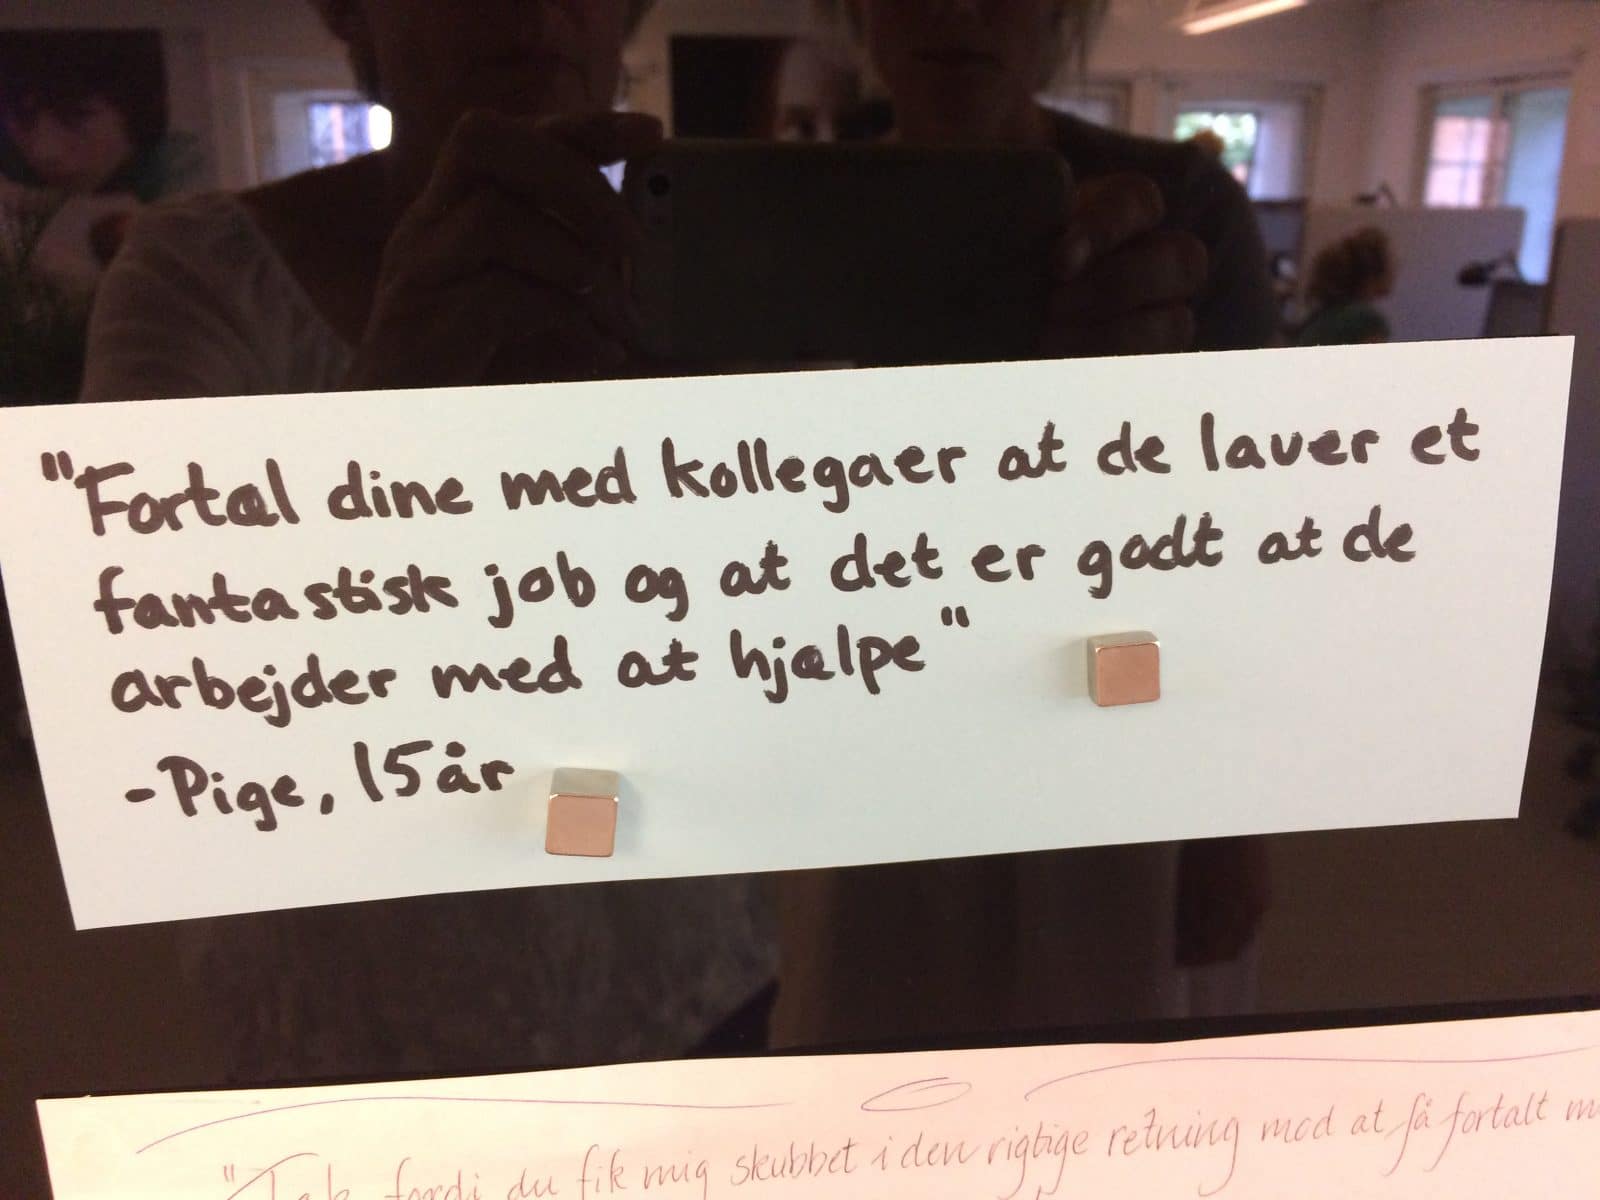 "Fortæl dine med kollegaer at de laver et
fantastisk job og at det er godt at de
arbejder med at hjælpe"
-Pige, 15 år
"Tak fordi du fik mig skubbet i den rigtige retning mod at få fortalt m